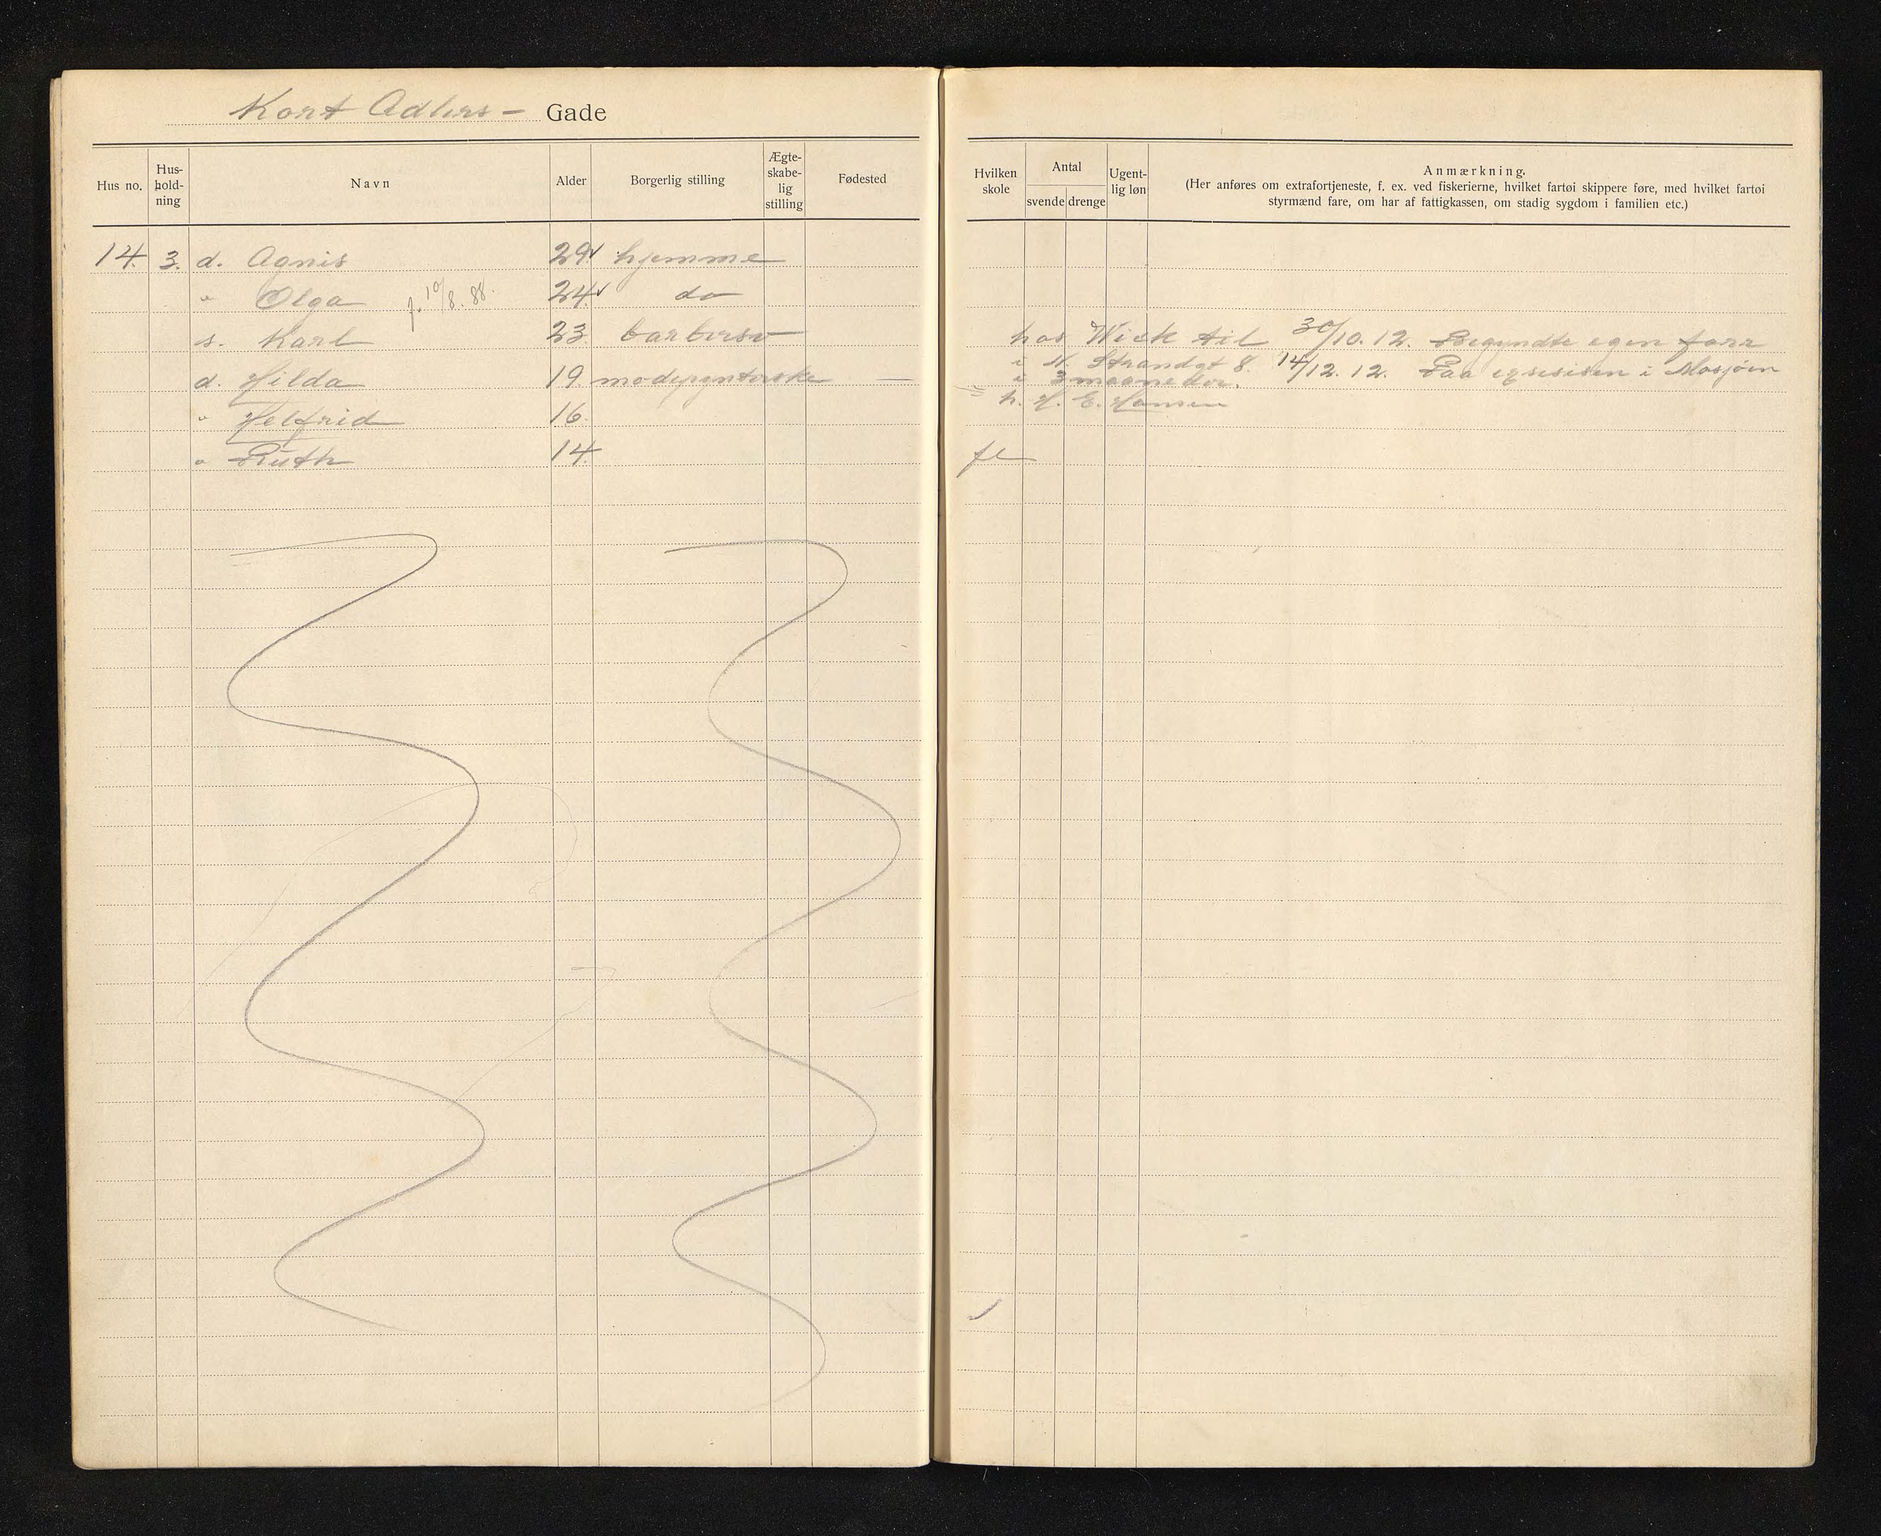 Kort Adlers - Gade
Hus no.
Hus-
hold-
ning
Navn
Alder
Borgerlig stilling
Ægte-
skabe-
lig
stilling
Fødested
Hvilken
skole
Antal
svende
drenge
Ugent-
lig løn
Anmærkning.
(Her anføres om extrafortjeneste, f. ex. ved fiskerierne, hvilket fartøi skippere føre, med hvilket fartøi
styrmænd fare, om har af fattigkassen, om stadig sygdom i familien etc.)
14. 3. d. Agnis 29 hjemme
" Olga f. 10/8. 88. 24 do
s. Karl 23 barbersv hos Wick til 30/10. 12. Begyndte egen forr
i N. Strandgt 8. 14/12. 12. Paa i Mosjøen
d. Hilda 19. modepynterske — i 3 maaneder.
" Helfrid 16. h. H. E. Hansen
" Ruth 14. fl